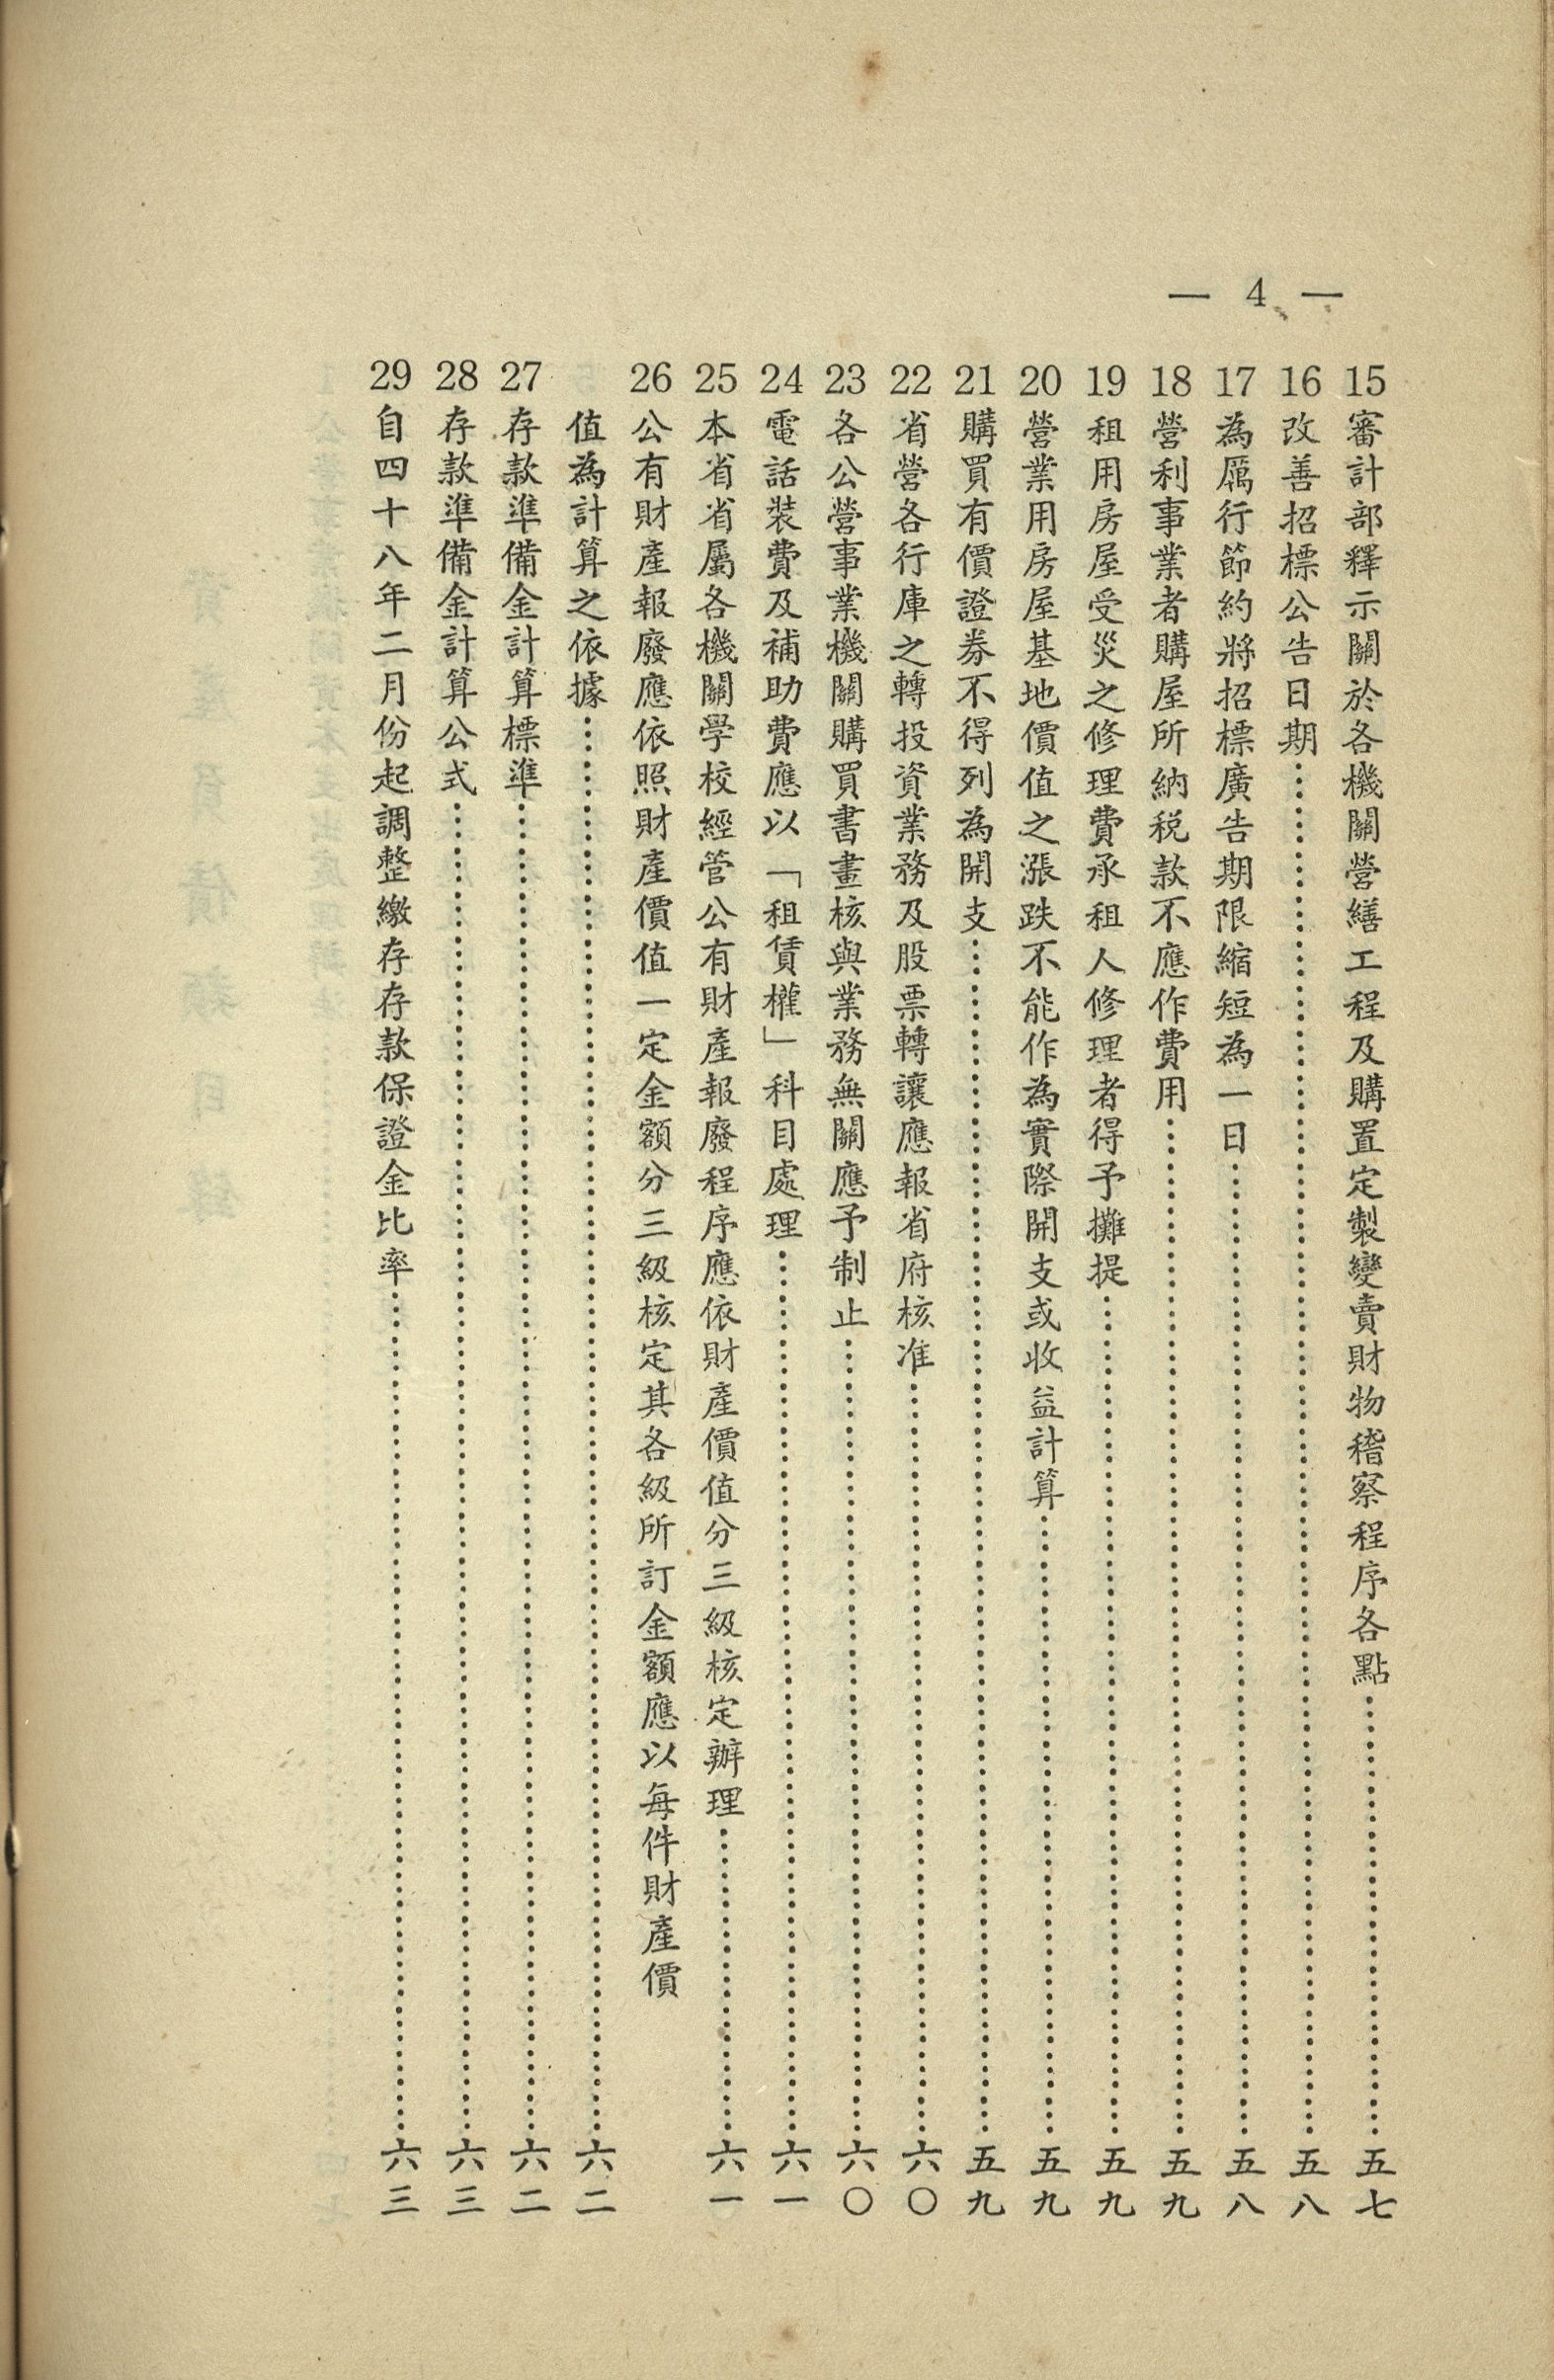 — 4 —
15審計部釋示關於各機關營繕工程及購置定製變賣財物稽察程序各點……五七
16改善招標公告日期……五八
17為厲行節約將招標廣告期限縮短為一日……五八
18營利事業者購屋所納稅款不應作費用……五九
19租用房屋受災之修理費承租人修理者得予攤提……五九
20營業用房屋基地價值之漲跌不能作為實際開支或收益計算……五九
21購買有價證券不得列為開支……五九
22省營各行庫之轉投資業務及股票轉讓應報省府核准……六〇
23各公營事業機關購買書畫核與業務無關應予制止……六〇
24電話裝費及補助費應以「租賃權」科目處理……六一
25本省省屬各機關學校經管公有財產報廢程序應依財產價值分三級核定辦理……六一
26公有財產報廢應依照財產價值一定金額分三級核定其各級所訂金額應以每件財產價
值為計算之依據……六二
27存款準備金計算標準……六二
28存款準備金計算公式……六三
29自四十八年二月份起調整繳存存款保證金比率……六三